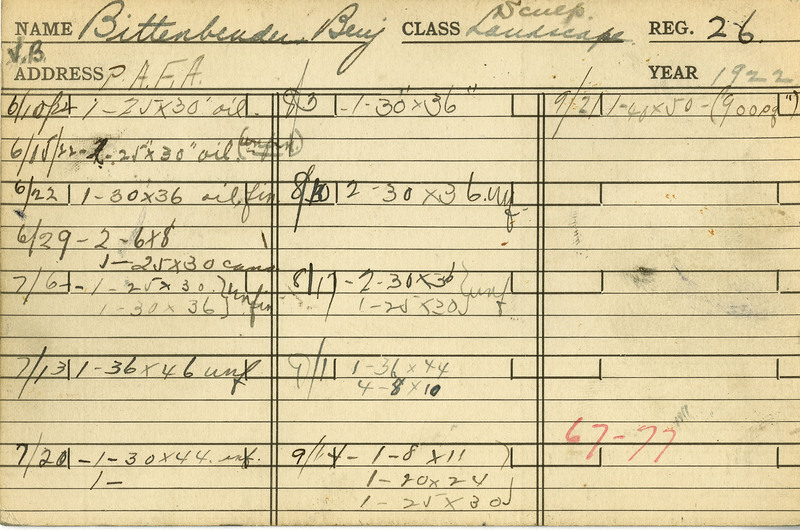 NAME Bittenbender, Benj CLASS Sculp. Landscape REG. 26
J.B.
ADDRESS P.A.F.A. YEAR 1922
6/10/22 1-25x30" oil.
6/15/22-1-25"x30" oil (unfin)
6/22 1-30x36 oil, fin
6/29-2-6x8
1-25x30 canv
7/6-1-25x30 } unfin
1-30x36
7/13 1-36x46 unf
7/20-1-30x44. unf.
1-
8/3 -1-30"x36"
8/10 2-30x36. unf
8/17-2-30x36 } unf
1-25x30
9/11 1-36x44
4-8x10
9/14-1-8x11
1-20x24
1-25x30
9/21 1-40x50-(900 sq")
67-77